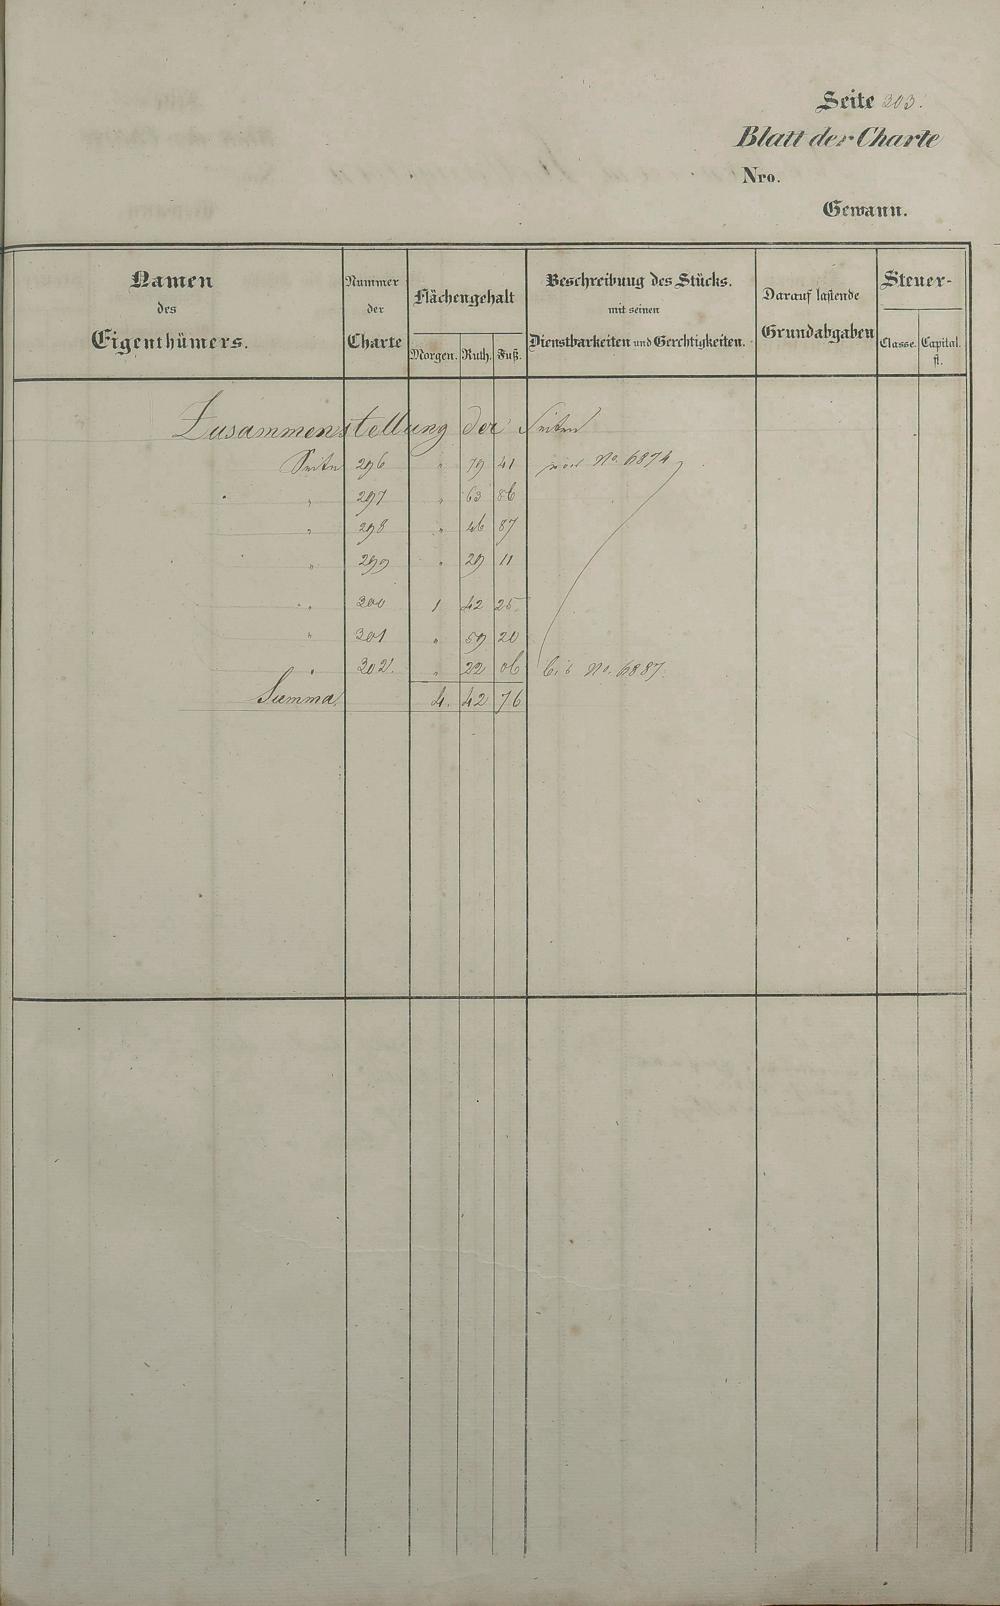 Seite 303.
Blatt der Charte
Nro.
Gewann.
Namen
des
Eigenthümers.
Nummer
der
Charte
Flächengehalt
Morgen. Ruth. Fuß.
Beschreibung des Stücks.
mit seinen
Dienstbarkeiten und Gerechtigkeiten.
Darauf lastende
Grundabgaben
Steuer-
Classe. Capital.
fl.
Zusammenstellung der Seiten
Seite 296 " 79 41 von No. 6874
" 297 " 63 86
" 298 " 46 87
" 299 " 29 11
" 300 1 42 25
" 301 " 59 20
" 302. " 22 06 bis No. 6887.
Summa 4. 42 76